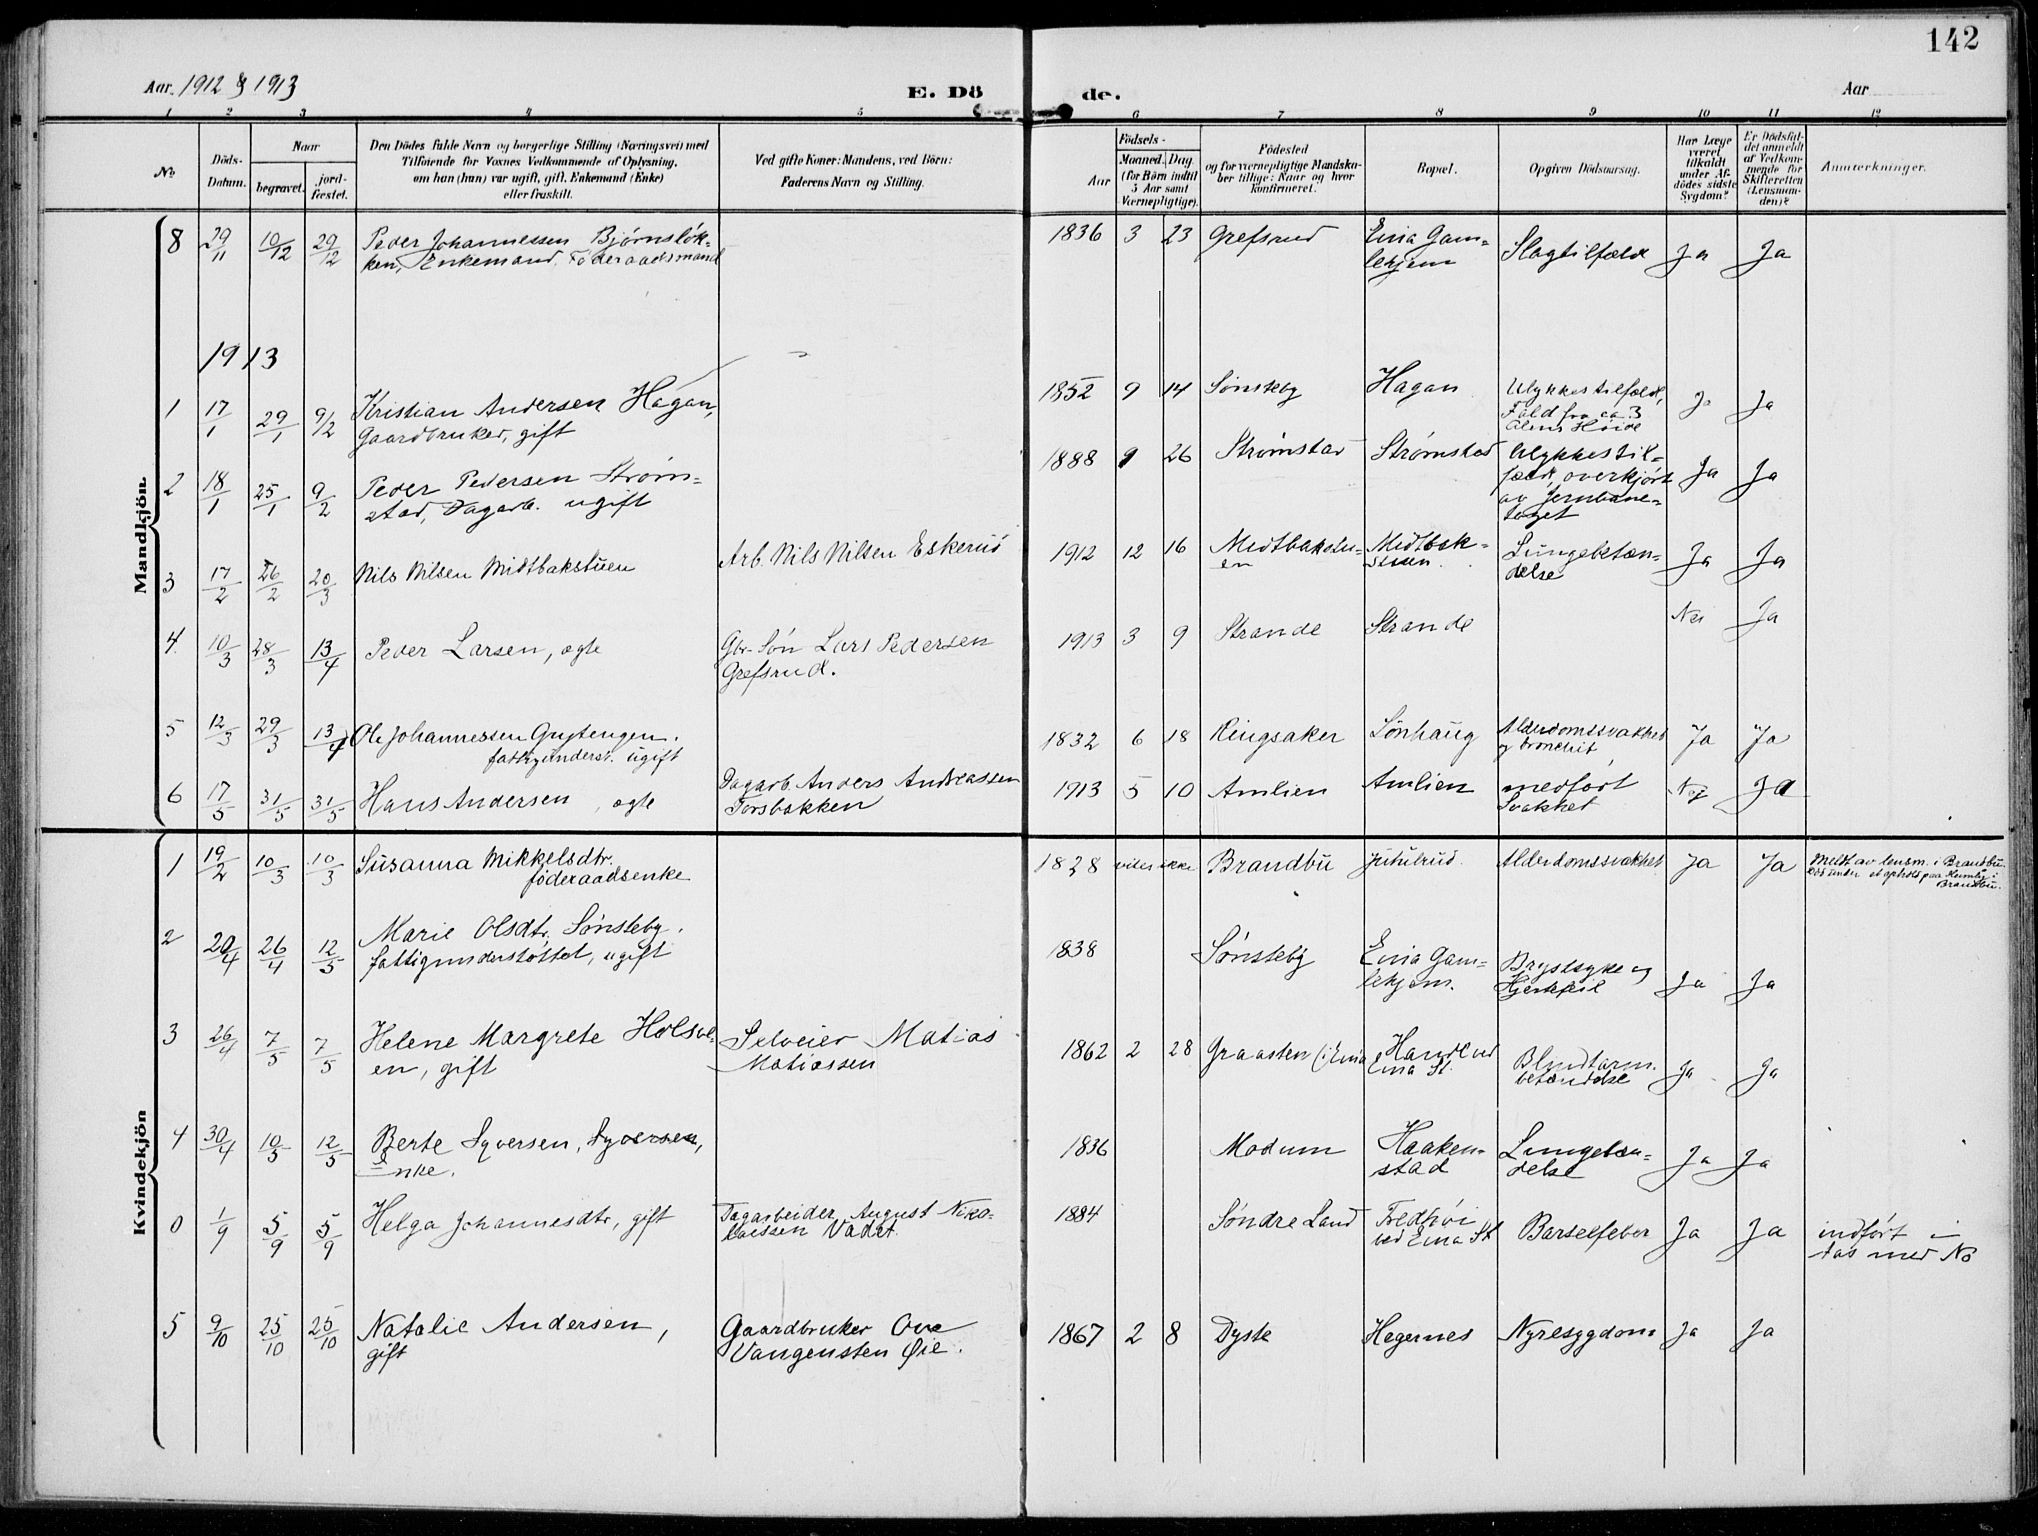 142
Aar. 1912 & 1913
E. Dö de.
Aar
1 2 3 4 5 6 7 8 9 10 11 12
No
Döds-Datum.
Naar
begravet.
jord-fæstet.
Den Dödes fulde Navn og borgerlige Stilling (Næringsvei) med
Tilföiende for Voxnes Vedkommende af Oplysning,
om han (hun) var ugift, gift, Enkemand (Enke)
eller fraskilt.
Ved gifte Koner: Mandens, ved Börn:
Faderens Navn og Stilling.
Födsels-
Aar
Maaned. Dag
(for Börn indtil
5 Aar samt
Værnepligtige).
Födested
og for værnepligtige Mandska-
ber tillige: Naar og hvor
konfirmeret.
Bopæl.
Opgiven Dödsaarsag.
Har Læge
været
tilkaldt
under Af-
dödes sidste
Sygdom?
Er Dödsfal-
det anmeldt
af Vedkom-
mende for
Skifteretten
(Lensman-
den)?
Anmærkninger.
Mandkjön.
8 29/11 10/12 29/12 Peder Johannessen Bjørnsløk-
ken, Enkemand. Føderaadsmand
1836 3 23 Grefsrud Eina Gam-
lehjem Slagtilfæld Ja Ja
1913
1 17/1 29/1 9/2 Kristian Andersen Hagan,
Gaardbruker, gift
1852 9 14 Sønsteby Hagan Ulykkestilfæld,
Fald fra ca 3
Alens Høide Ja Ja
2 18/1 25/1 9/2 Peder Pedersen Strøm-
stad, Dagarb. ugift
1888 9 26 Strømstad Strømstad Ulykkestil-
fæld, overkjørt
av Jernbane-
toget Ja Ja
3 17/2 26/2 20/3 Nils Nilsen Midtbakstuen
Arb. Nils Nilsen Eskerud
1912 12 16 Midtbakstu-
en Midtbak-
stuen Lungebetæn-
delse Ja Ja
4. 10/3 28/3 13/4 Peder Larsen, ægte
Gbr. Søn Lars Pedersen
Grefsrud.
1913 3 9 Strande Strande Nei Ja
5 12/3 29/3 13/4 Ole Johannessen Grytengen.
fattigunderst. ugift
1832 6 18 Ringsaker Sønhaug Alderdomssvakhet
og bronchit Ja Ja
6 17/5 31/5 31/5 Hans Andersen, ægte
Dagarb. Anders Andreassen
Forsbakken
1913 5 10 Amlien Amlien medført
Svakhet Nei Ja
Kvindekjön
1 19/2 10/3 10/3 Susanna Mikkelsdtr.
føderaadsenke
1828 vites ikke Brandbu Jutulrud. Alderdomssvakhet Ja Ja Meldt av lensm. i Brandbu.
Død under et ophold paa i
Brandbu.
2 20/4 26/4 12/5 Marie Olsdtr. Sønsteby.
fattigunderstøttet, ugift
1838 Sønsteby Eina Gam-
lehjem. Brystsyke og
Hjertefeil Ja Ja
3 26/4 7/5 7/5 Helene Margrete Holsve-
en, gift
Selveier Matias
Matiassen
1862 2 28 Graasten (i Eina Handl ved
Eina St. Blindtarm
betændelse Ja Ja
4 30/4 10/5 12/5 Berte Syversen, Syversen,
Enke.
1836 Modum Haaken-
stad Lungebetæn-
delse Ja Ja
0 1/9 5/9 5/9 Helga Johannesdtr, gift
Dagarbeider August Niko-
laissen Vadet.
1884 Søndre Land Fredhøi
ved Eina St Barselfeber Ja Ja indført i
med No
5 9/10 25/10 25/10 Natalie Andersen,
gift
Gaardbruker Ove
Vangensten Øie.
1867 2 8 Dyste Hegernes Nyresygdom Ja Ja